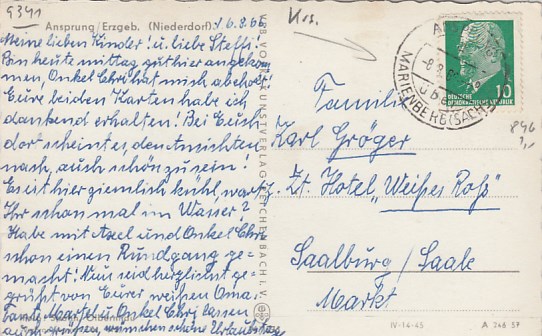 9341
Ansprung/Erzgeb. (Niederdorf)
6.8.62
Krs.
Meine lieben Kinder! u. liebe Steffi.
Bin heute mittag gut hier angekom-
men, Onkel Chri hat mich abeholt
Eure beiden Karten habe ich
dankend erhalten! Bei Euch
dort scheint es, den Ansichten
nach, auch schön zu sein!
Es ist hier ziemlich kühl, wart
Ihr schon mal im Wasser?
Habe mit Axel und Onkel Chri
schon einen Rundgang ge-
macht! Nun seid herzlichst ge-
grüßt von Eurer weißen Oma.
Onkel Chri lassen
auch grüßen, wünschen schöne Urlaubstage
VEB VOLKSKUNSTVERLAG REICHENBACH I. V.
Familie
Karl Gröger
z. Zt. Hotel "Weißes Roß"
Saalburg / Saale
Markt
DEUTSCHE
DEMOKRATISCHE REPUBLIK
10
über
MARIENBERG (SACHS)
846
IV-14-45
A 248 57